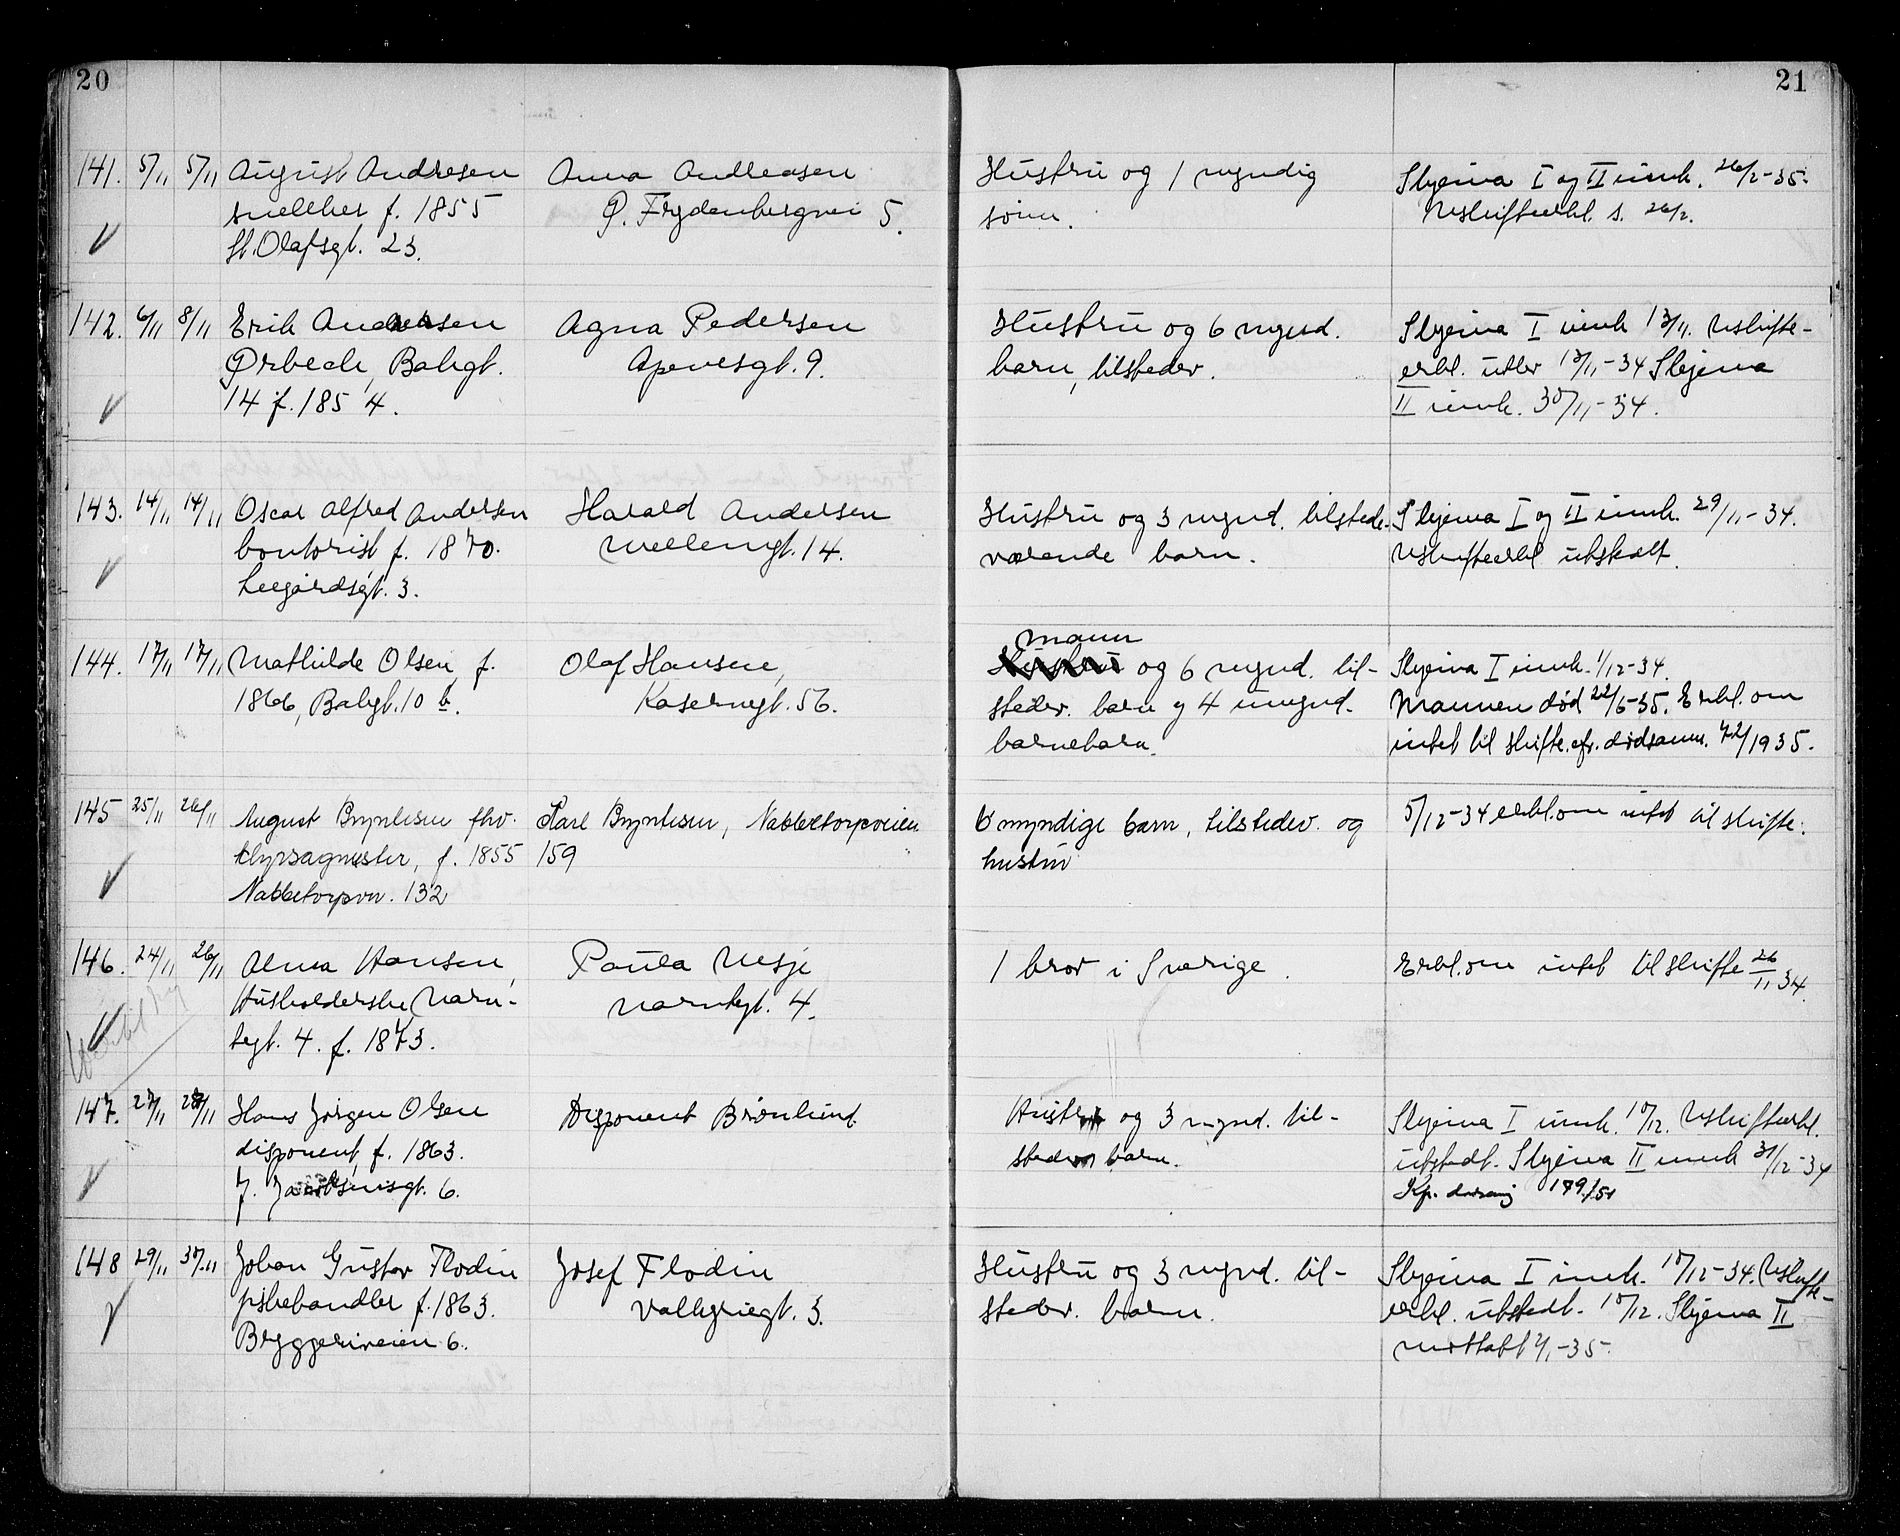 20
21
141. 5/11 5/11 August Andresen Anna Andreasen Hustru og 1 myndig Skjema I og II innk. 26/2-35.
snekker f. 1855 Ø. Frydenbergvei 5. sönn. Uskifteerkl. s. 26/2.
St. Olafsgt. 23.
142. 6/11 8/11 Erik Andersen Agna Pedersen Hustru og 6 mynd. Skjema I innk 13/11. Uskifte-
Ørbeck, Bakgt. Apenesgt. 9. barn, tilstedev. erkl. utlev 13/11-34 Skjema
14 f. 1854. II innk. 30/11-34.
143. 14/11 14/11 Oscar Alfred Andersen Harald Andersen Hustru og 3 mynd. tilstede- Skjema I og II innk. 29/11-34.
kontorist f. 1870. Wellengt. 14. værende barn. Uskifteerkl utstedt.
Leegårdsgt. 3.
mann
144. 17/11 17/11 Mathilde Olsen f. Olaf Hansen, Hustru og 6 mynd. til- Skjema I innk. 1/12-34.
1866, Bakgt. 10 b. Kasernegt. 56. stedev. barn og 4 umynd. Mannen död 22/6-35. Erkl. om
barnebarn. intet til skifte. cfr. dödsanm. 72/1935.
145 25/11 26/11 August Bryntesen fhv. Karl Bryntesen, Nabbetorpveien 6 myndige barn, tilstedev. og 5/12-34 erkl. om intet til skifte.
f. 1855 159 hustru
Nabbetorpvn. 132
146. 24/11 26/11 Alma Hansen, Paula Nesje 1 bror i Sverige. Erkl. om intet til skifte 26/11 34.
Husholderske, Varn- Varntegt. 4.
tegt. 4. f. 1873.
147. 27/11 28/11 Hans Jörgen Olsen Disponent Brönlund. Hustru og 3 mynd. til- Skjema I innk. 10/12. Uskifteerkl.
disponent, f. 1863. stedev barn. utstedt. Skjema II innk 31/12-34
J. Jacobsensgt. 6. Kp. 179/51
148 29/11 30/11 Johan Gustav Flodin Josef Flodin Hustru og 3 mynd. til- Skjema I innk. 10/12-34. Uskifte-
fiskehandler f. 1863. Valkyriegt. 3. stedev. barn. erkl. utstedt. 10/12. Skjema II
Bryggeriveien 6. mottatt 2/1-35.